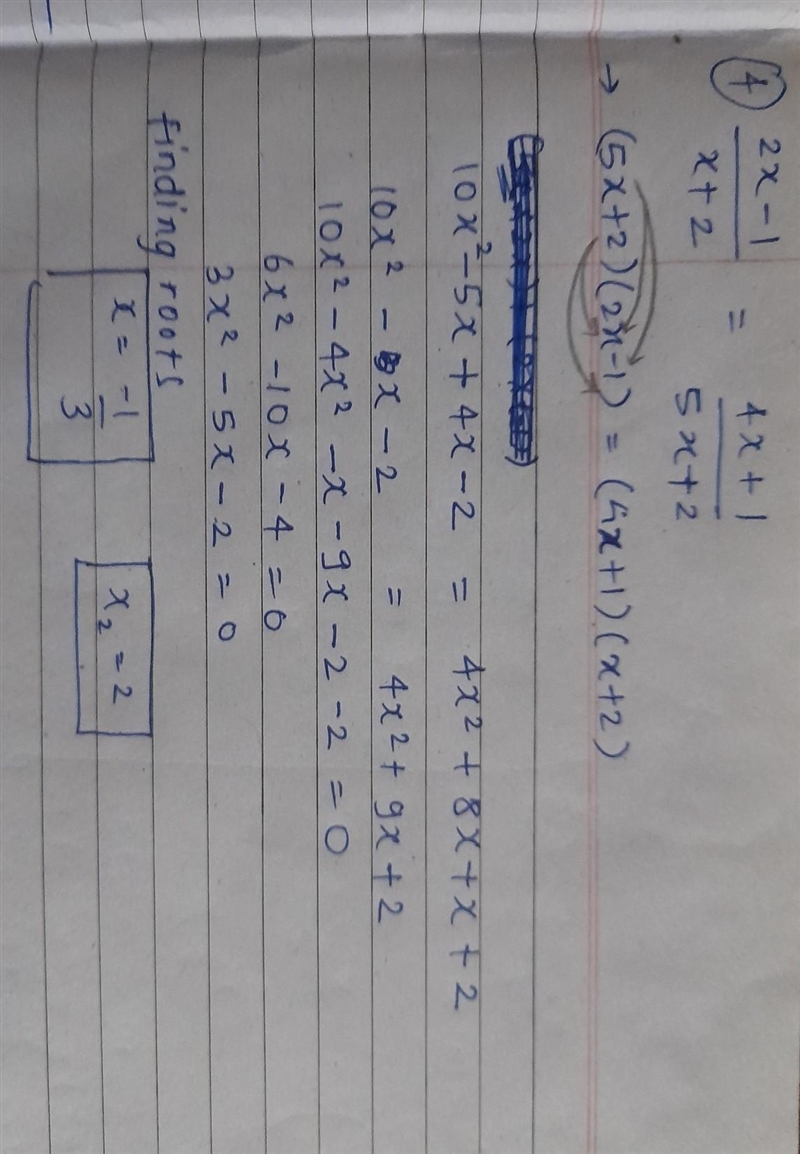 ④ (2x-1)/(x+2) = (4x+1)/(5x+2)
→ (5x+2)(2x-1) = (4x+1)(x+2)
10x² - 5x + 4x - 2 = 4x² + 8x + x + 2
10x² - x - 2 = 4x² + 9x + 2
10x² - 4x² - x - 9x - 2 - 2 = 0
6x² - 10x - 4 = 0
3x² - 5x - 2 = 0
finding roots
x = -1/3 x₂ = 2